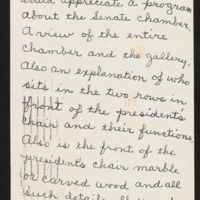 would appreciate a program
about the Senate chamber.
A view of the entire
chamber and the gallery.
Also an explanation of who
sits in the two rows in
front of the president's
chair and their functions.
Also is the front of the
presidents chair marble
or carved wood and all
such details